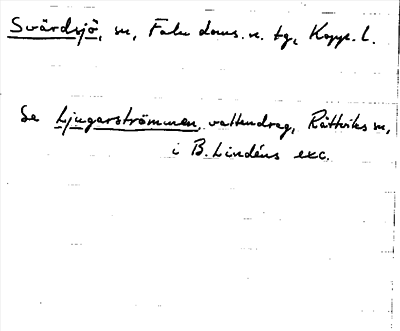 Svärdsjö, sn, Falu doms. n. tg, Kopp. l.
Se Ljugarströmmen, vattendrag, Rättviks sn,
i B. Lindéns exc.